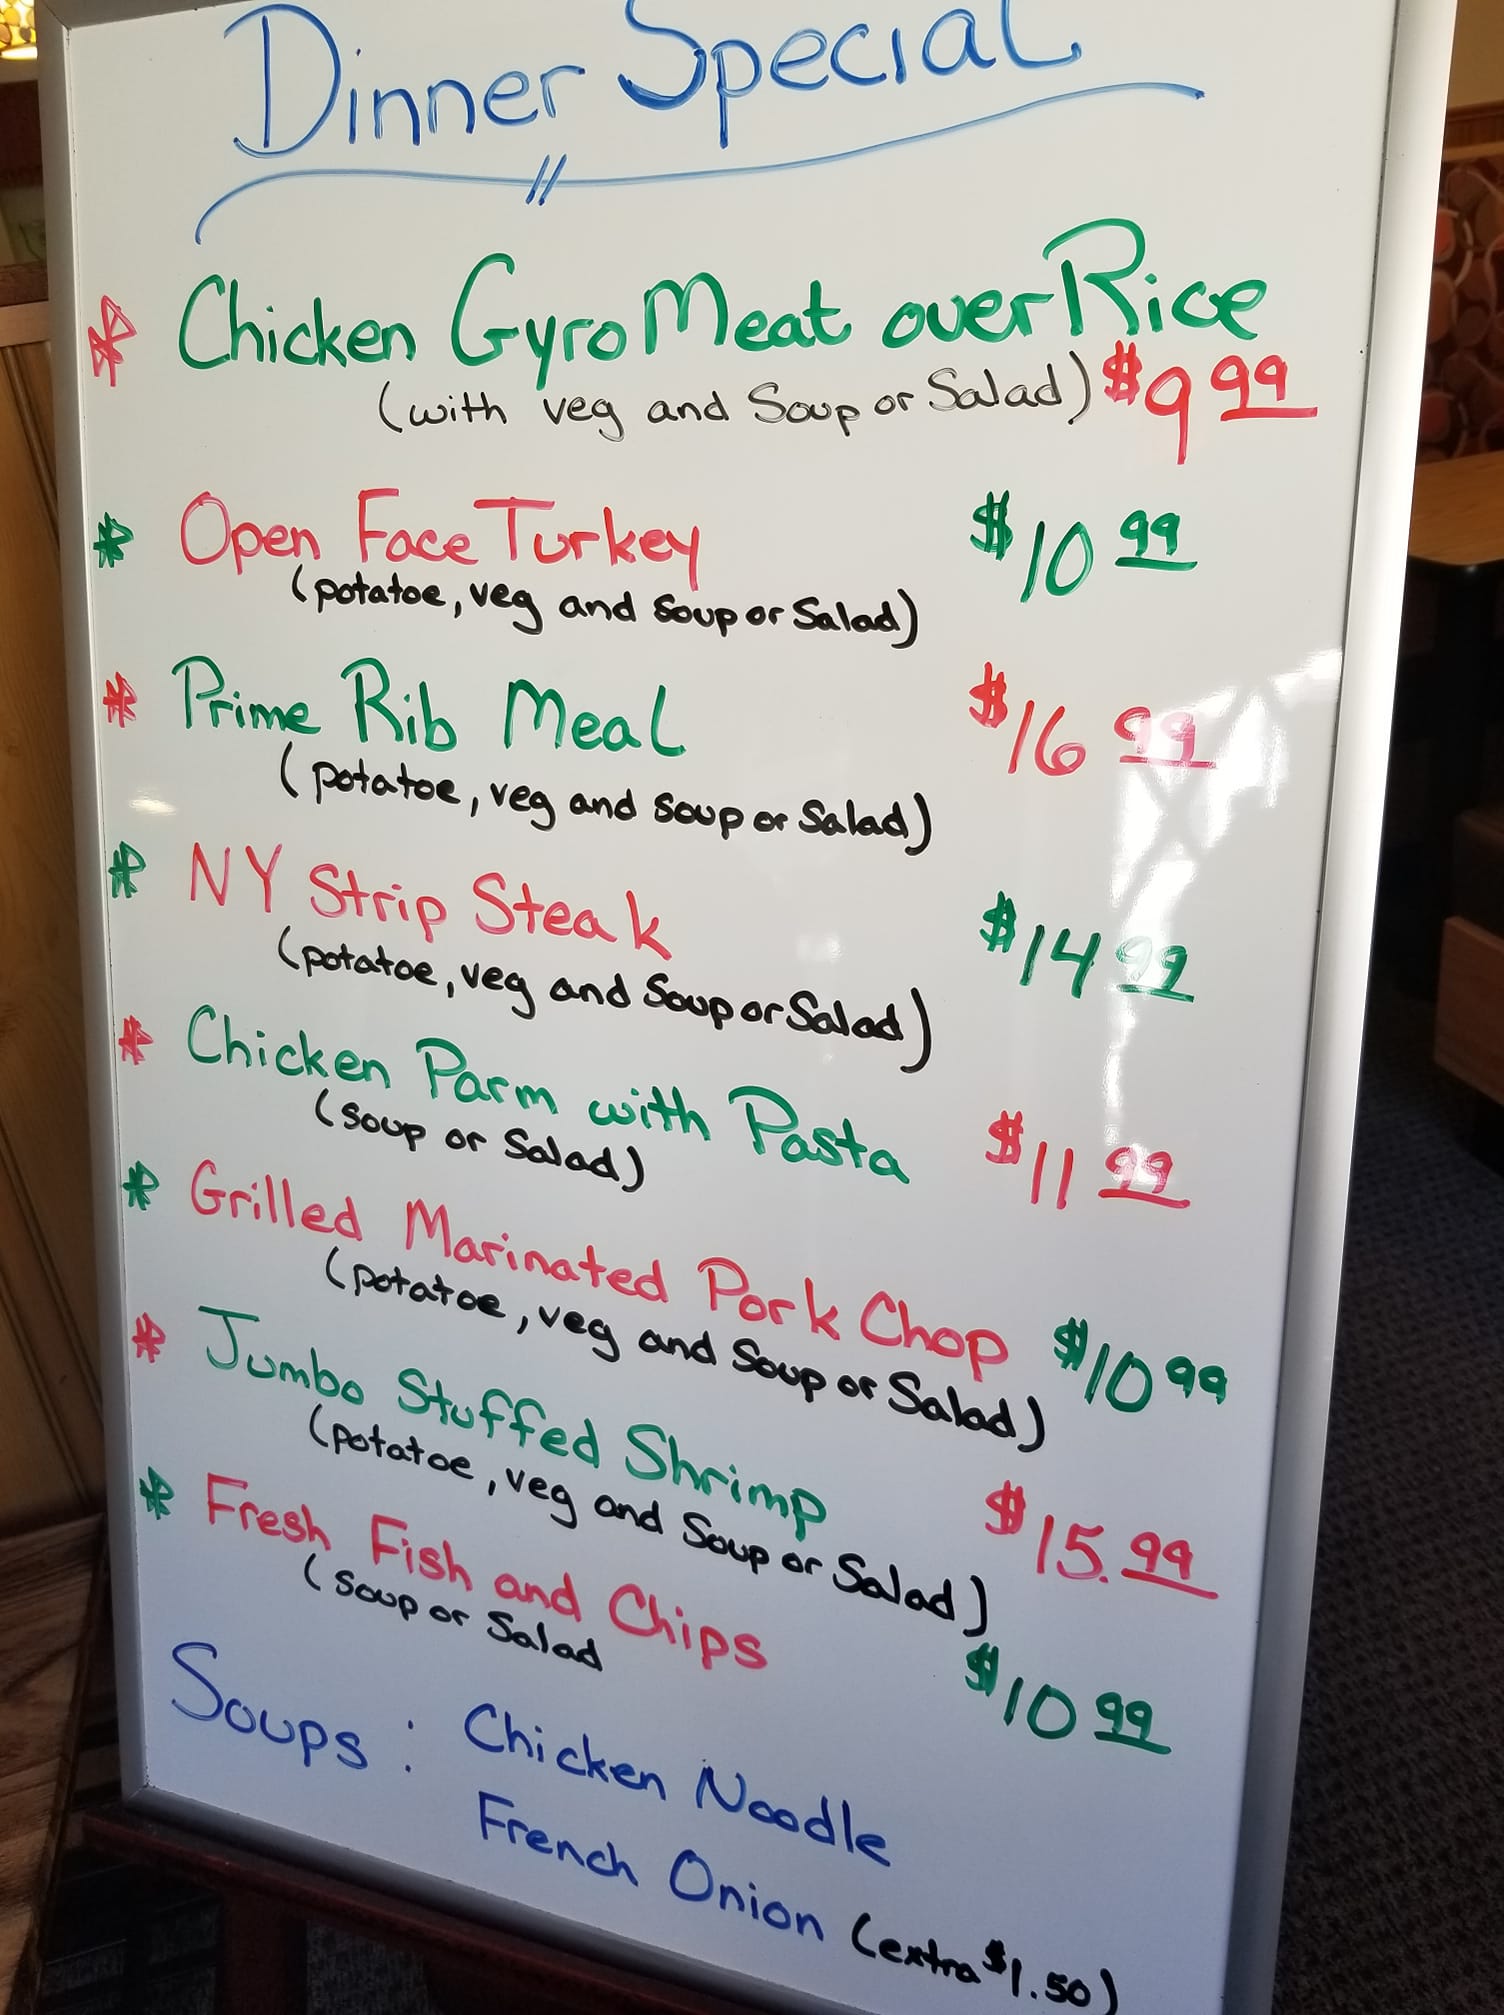 Dinner Special
* Chicken Gyro Meat over Rice
(with veg and Soup or Salad) $9 99
* Open Face Turkey $10 99
(potatoe, veg and Soup or Salad)
* Prime Rib Meal $16 99
(potatoe, veg and Soup or Salad)
* NY Strip Steak $14 99
(potatoe, veg and Soup or Salad)
* Chicken Parm with Pasta $11 99
(soup or Salad)
* Grilled Marinated Pork Chop $10 99
(potatoe, veg and Soup or Salad)
* Jumbo Stuffed Shrimp $15.99
(potatoe, veg and Soup or Salad)
* Fresh Fish and Chips $10 99
(soup or Salad
Soups: Chicken Noodle
French Onion (extra $1.50)